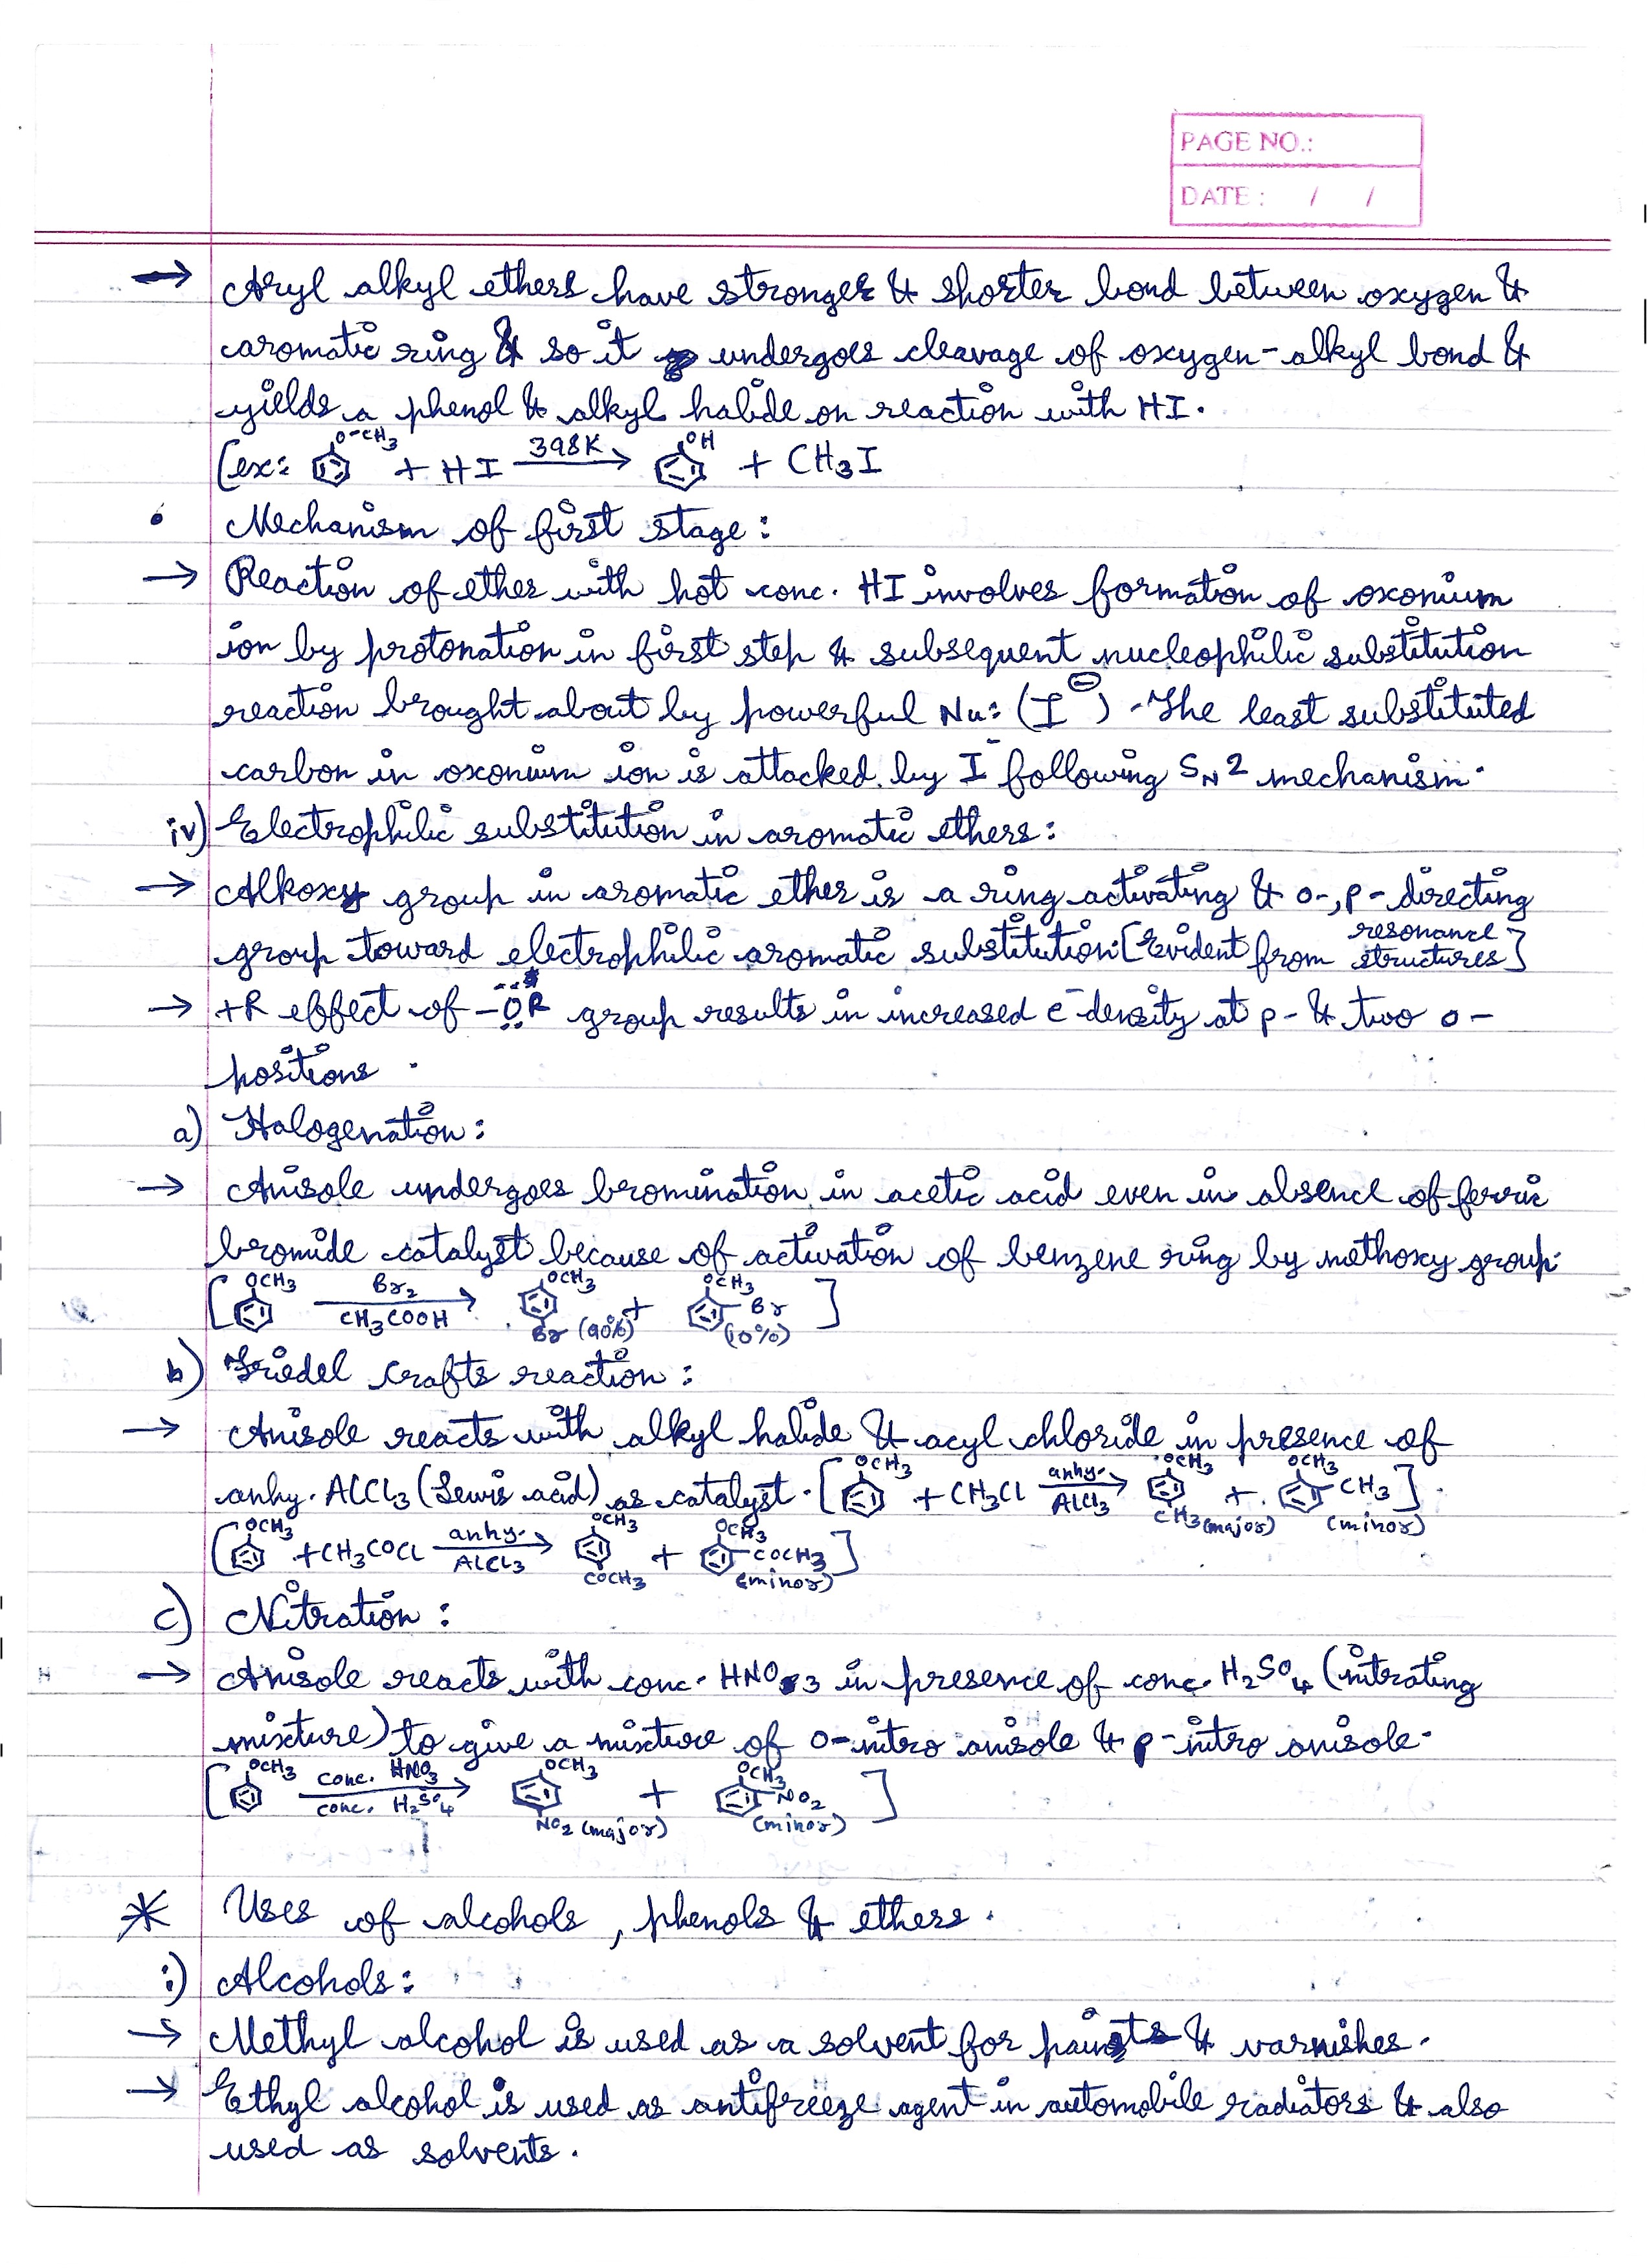 PAGE NO.:
DATE : / /
→ Aryl alkyl ethers have stronger & shorter bond between oxygen &
aromatic ring & so it undergoes cleavage of oxygen-alkyl bond &
yields a phenol & alkyl halide on reaction with HI.
[ex: O-CH3 + HI 398K → OH + CH3I
• Mechanism of first stage:
→ Reaction of ether with hot conc. HI involves formation of oxonium
ion by protonation in first step & subsequent nucleophilic substitution
reaction brought about by powerful Nu: (I⊖). The least substituted
carbon in oxonium ion is attacked by I⁻ following SN2 mechanism.
iv) Electrophilic substitution in aromatic ethers:
→ Alkoxy group in aromatic ether is a ring activating & o-, p- directing
group toward electrophilic aromatic substitution. [Evident from resonance structures]
→ +R effect of -OR group results in increased e⁻ density at p- & two o-
positions.
a) Halogenation:
→ Anisole undergoes bromination in acetic acid even in absence of ferric
bromide catalyst because of activation of benzene ring by methoxy group.
[OCH3 Br2 → CH3COOH OCH3 Br (90%) + OCH3 Br (10%)]
b) Friedel Crafts reaction:
→ Anisole reacts with alkyl halide & acyl chloride in presence of
anhy. AlCl3 (Lewis acid) as catalyst. [OCH3 + CH3Cl anhy. → AlCl3 OCH3 CH3 (major) + OCH3 CH3 (minor)].
[OCH3 + CH3COCl anhy. → AlCl3 OCH3 COCH3 + OCH3 COCH3 (minor)]
c) Nitration:
→ Anisole reacts with conc. HNO3 in presence of conc. H2SO4 (nitrating
mixture) to give a mixture of o-nitro anisole & p-nitro anisole.
[OCH3 conc. HNO3 → conc. H2SO4 OCH3 NO2 (major) + OCH3 NO2 (minor)]
* Uses of alcohols, phenols & ethers.
i) Alcohols:
→ Methyl alcohol is used as a solvent for paints & varnishes.
→ Ethyl alcohol is used as antifreeze agent in automobile radiators & also
used as solvents.